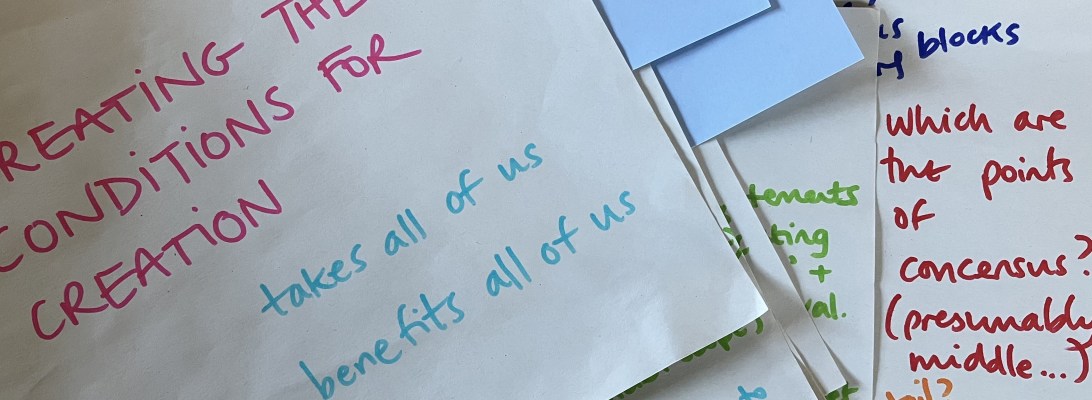 REATING THE
CONDITIONS FOR
CREATION
takes all of us
benefits all of us
blocks
which are
the points
of
concensus?
(presumably
middle...)
tements
ting
+
val.
to